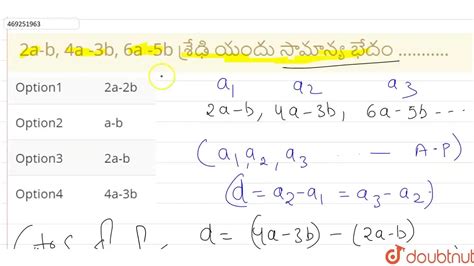 469251963
2a-b, 4a -3b, 6a -5b శ్రేఢి యందు సామాన్య భేదం ...........
Option1 2a-2b
Option2 a-b
Option3 2a-b
Option4 4a-3b
a₁ a₂ a₃
2a-b, 4a-3b, 6a-5b ---
(a₁, a₂, a₃ ... — A·P)
(d = a₂-a₁ = a₃-a₂)
d = (4a-3b) - (2a-b)
doubtnut